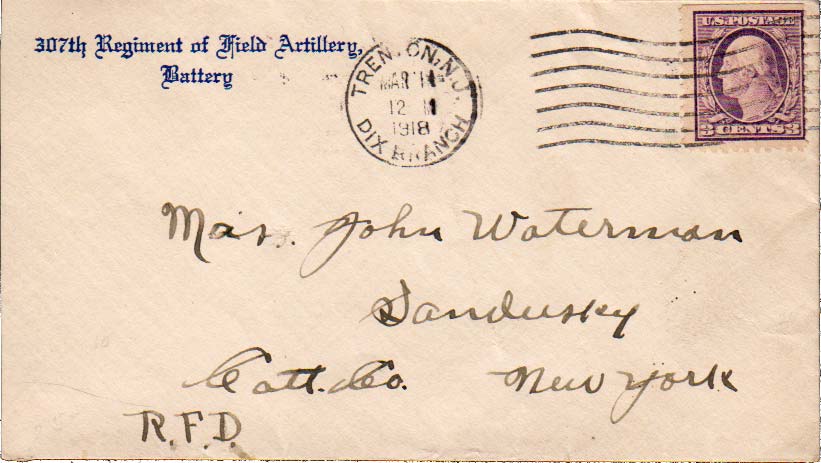 307th Regiment of Field Artillery,
Battery
TRENTON, N.J.
MAR 11
12 M
1918
DIX BRANCH
U.S. POSTAGE
3 CENTS 3
Mrs. John Waterman
Sandusky
Catt. Co. New York
R.F.D.